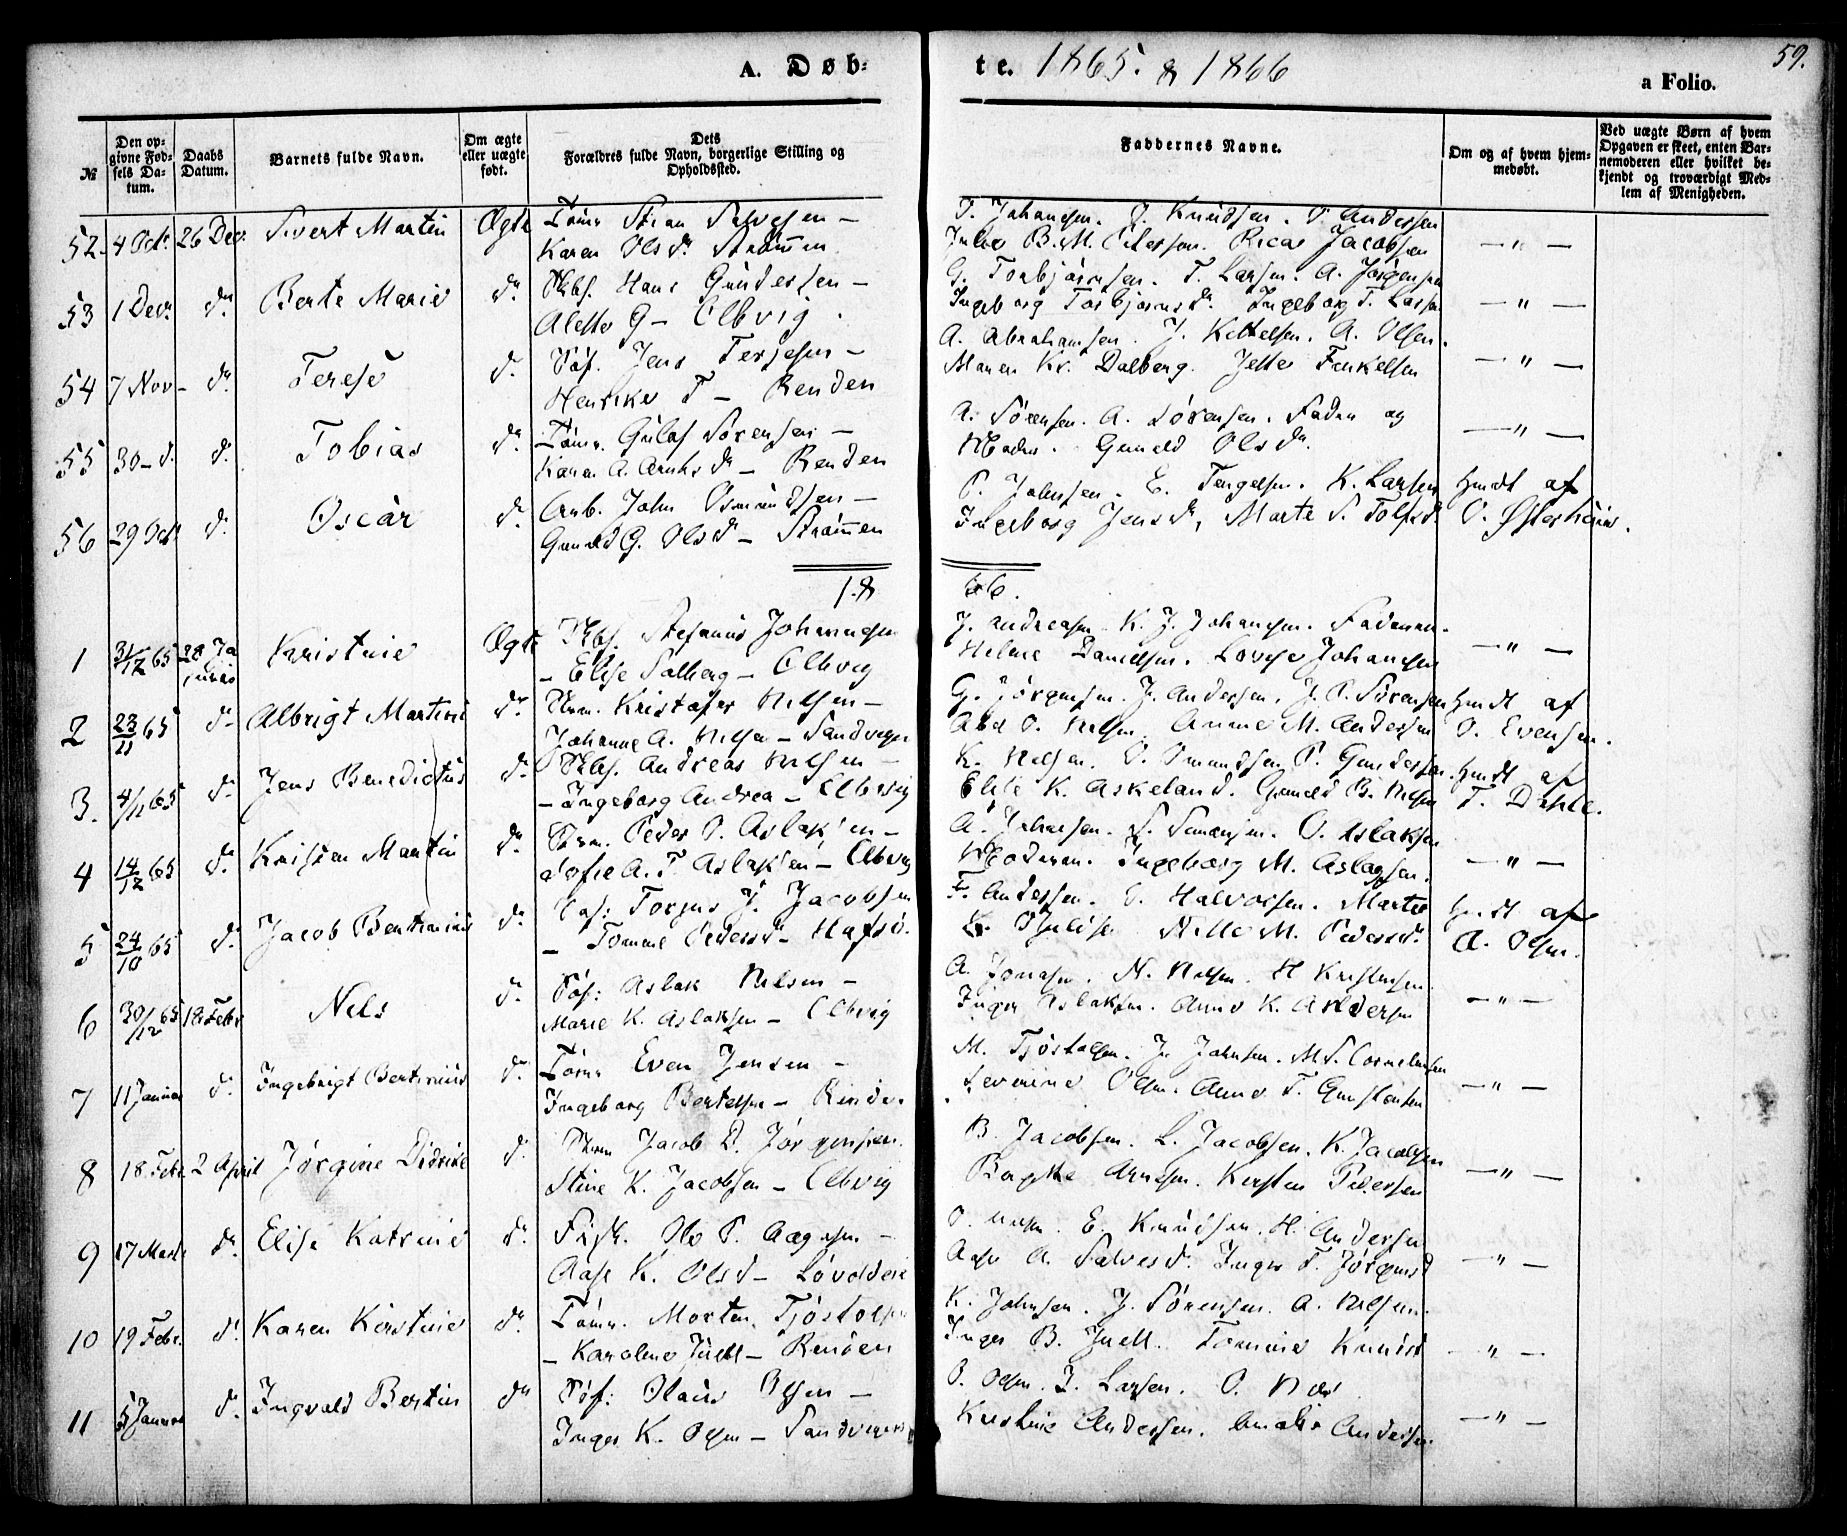 59.
A. Døb-
te. 1865. & 1866
a Folio.
№
Den op-
givne Fød-
sels Da-
tum.
Daabs
Datum.
Barnets fulde Navn.
Om ægte
eller uægte
født.
Dets
Forældres fulde Navn, borgerlige Stilling og
Opholdssted.
Faddernes Navne.
Om og af hvem hjem-
medøbt.
Ved uægte Børn af hvem
Opgaven er skeet, enten Bar-
nemoderen eller hvilket be-
kjendt og troværdigt Med-
lem af Menigheden.
52. 4 Octr 26 Dec. Sivert Martin Ægte Tømr Stian Salvesen –
Karen Olsdr Strømmen
J. Johannesen. J. Knudsen. O. Andersen
B. M. Petersen. Jacobsen — " —
53 1 Decr dr Berte Marie dr Skbf. Hans Gundersen –
Alette G – Elbvig
G. Torbjørnsen. T. Larsen. A. Jørgensen
Ingeborg Torbjørnsdr Ingeborg T. Larsen — " —
54 7 Nov – dr Terese d. Søf. Jens Terjesen –
Henrikke T – Renden
A. Abrahamsen. J. Kittelsen. A. Olsen.
Maren Kr. Dalberg. Jette Terkelsen — " —
55 30 – d. d. Tobias dr Tømr. Gulof Sørensen –
Karen A. – Renden
A. Sørensen. A. Sørensen. Faden og
Moden. Gunild Olsdr — " —
56 29 Oct. d. Oscar d. Arb. John Osmundsen –
Gunild G. Olsd – Strømmen
P. Johnsen. E. Tengelsen. K. Larsen
Ingeborg Jensdr, Marte S. Tolfsd.
Hjmdt af
O. Østerhuus.
18 66.
1 31/12 65 28 Ja
nuar Kristine Ægte Skbf. Stefanus Johannesen
– Elise Solberg – Elbvig
J. Andreasen. K. J. Johansen. Faderen.
Helene Danielsen. Lovise Johannesen — " —
2 23/11 65 d. Albrigt Martinius dr. Kristofer Nilsen –
Johanne A. Nilsen – Sandvigen
G. Jørgensen. J. Andersen. J. P. Sørensen
O. Nilsen Anne M. Andersen
Hjmdt af
O. Evensen.
3. 4/11 65 d. Jens Benedictus d. Skbf. Andreas Nilsen –
– Ingeborg Andrea – Elbvig
K. Nilsen. O. Omundsen P. Gundersen.
Elise K. Askeland. Gunild B. Nilsen
Hjmdt af
T. Dahle.
4 14/12 65 dr Kristen Martin dr Peder P. Aslaksen –
Sofie A. T. Aslaksen – Elbvig
A. Johnsen. S. Simonsen. O. Aslaksen
Moderen. Ingeborg M. Aslagsen. — " —
5 24/10 65 d. Jacob Bertinius dr Søf: Torjus J. Jacobsen
– Tomine Pedersd – Hafsø.
F. Andersen. E. Halvorsen. Marte
Nille M. Pedersdr
Hjmdt af
A. Olsen.
6 30/12 65 18 Febr Nels d. Søf: Aslak Nilsen –
Marie K. Aslaksen – Elbvig
A. Jonasen. N. Nilsen. H Kristensen.
Inger Aslaksen. Anne K. Andersen — " —
7 11 Januar d. Ingebrigt Bertinius d. Tømr Even Jensen –
Ingeborg Bertelsen – Renden
M. Tjøstolfsen. J. Johnsen. M. S. Corneliusen
Severine Olsen. Anne T. Gunstensen — " —
8 18 Febr. 2 April Jørgine Didrikke d. Jacob D. Jørgensen.
Stine K. Jacobsen – Elbvig
B. Jacobsen. L. Jacobsen. K. Jacobsen
Arnesen. Kirsten Pedersen — " —
9 17 Marts dr. Elise Katrine d. Fisk. Ole P. Aagesen –
Aase K. Olsd – Løvolddere
O. Nilsen. E. Knudsen. H. Andersen
Aase A. Salvesd. Inger T. Jørgensd — " —
10 19 Febr. d. Karen Kirstine dr. Tømr. Morten Tjøstolfsen
– Karoline Juell – Renden
K. Johnsen. J. Sørensen. A. Nilsen.
Inger B. Juell. Tomine Knudsd — " —
11 5 Januar d. Ingvald Bertin dr Søf: Olaus Olsen –
Inger K. Olsen – Sandvigen
O. Olsen. J. Larsen. O. Næs.
Kristine Andersen. Amalie Andersen. — " —